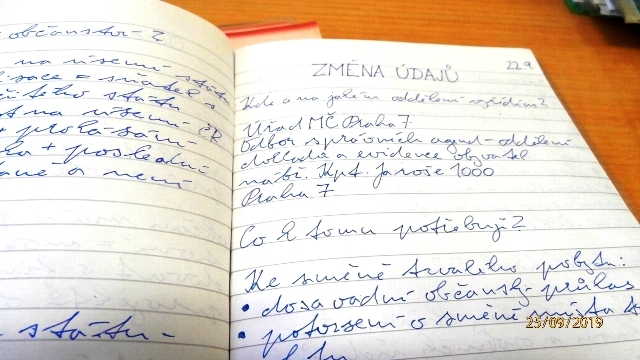 občanstv- ?
na území státu
= sňatek s
státu
na území ČR
+ prohlášení
+ poslední
a není
státu-
ZMĚNA ÚDAJŮ
22.9.
Kde a na jakém oddělení vyřídím?
Úřad MČ Praha 7
Odbor správních agend - oddělení
dokladů a evidence obyvatel
nábř. Kpt. Jaroše 1000
Praha 7
Co k tomu potřebuji?
Ke změně trvalého pobytu:
• dosavadní občanský průkaz
• potvrzení o změně místa
25/09/2019